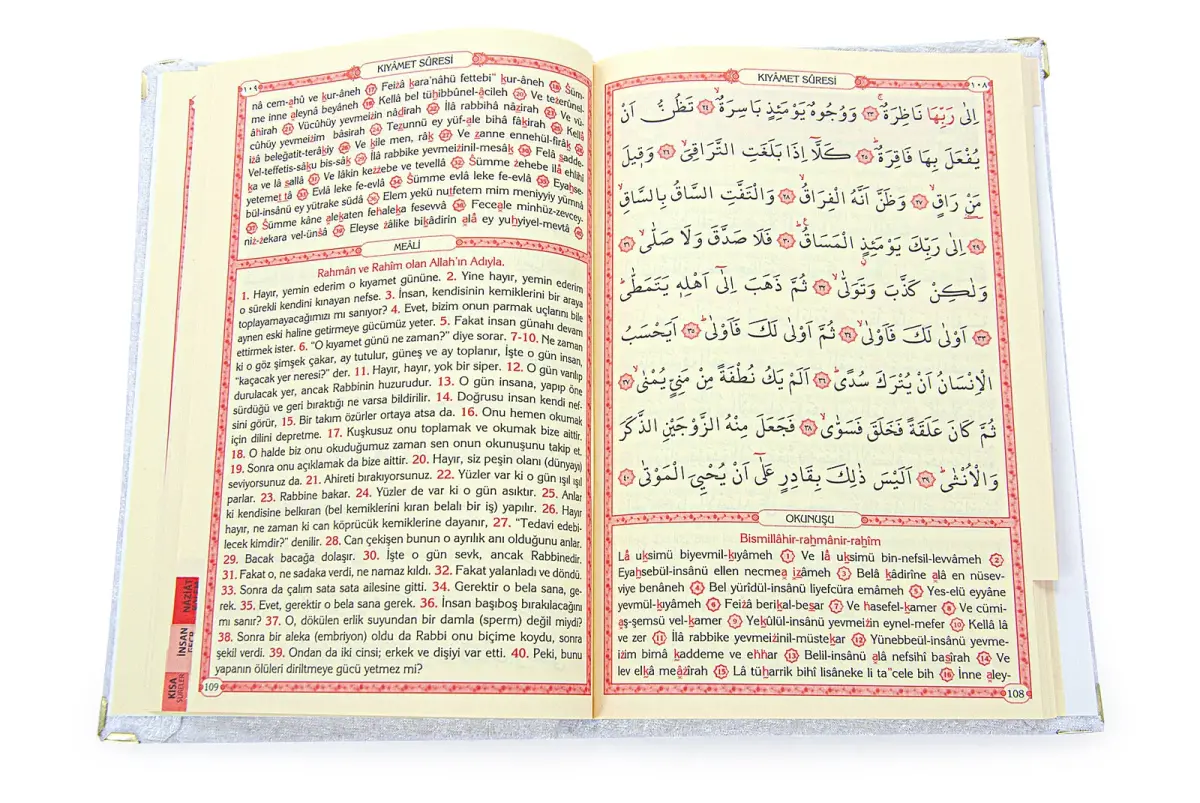 KIYÂMET SÛRESİ
١٠٨
اِلٰى رَبِّهَا نَاظِرَةٌۚ ﴿٢٣﴾ وَوُجُوهٌ يَوْمَئِذٍ بَاسِرَةٌۙ ﴿٢٤﴾ تَظُنُّ اَنْ
يُفْعَلَ بِهَا فَاقِرَةٌۜ ﴿٢٥﴾ كَلَّٓا اِذَا بَلَغَتِ التَّرَاقِيَۙ ﴿٢٦﴾ وَق۪يلَ
مَنْ رَاقٍۙ ﴿٢٧﴾ وَظَنَّ اَنَّهُ الْفِرَاقُۙ ﴿٢٨﴾ وَالْتَفَّتِ السَّاقُ بِالسَّاقِۙ
﴿٢٩﴾ اِلٰى رَبِّكَ يَوْمَئِذٍۨ الْمَسَاقُۜ ﴿٣٠﴾ فَلَا صَدَّقَ وَلَا صَلّٰىۙ ﴿٣١﴾
وَلٰكِنْ كَذَّبَ وَتَوَلّٰىۙ ﴿٣٢﴾ ثُمَّ ذَهَبَ اِلٰٓى اَهْلِه۪ يَتَمَطّٰىۜ
﴿٣٣﴾ اَوْلٰى لَكَ فَاَوْلٰىۙ ﴿٣٤﴾ ثُمَّ اَوْلٰى لَكَ فَاَوْلٰىۜ ﴿٣٥﴾ اَيَحْسَبُ
الْاِنْسَانُ اَنْ يُتْرَكَ سُدًىۜ ﴿٣٦﴾ اَلَمْ يَكُ نُطْفَةً مِنْ مَنِيٍّ يُمْنٰىۙ ﴿٣٧﴾
ثُمَّ كَانَ عَلَقَةً فَخَلَقَ فَسَوّٰىۙ ﴿٣٨﴾ فَجَعَلَ مِنْهُ الزَّوْجَيْنِ الذَّكَرَ
وَالْاُنْثٰىۜ ﴿٣٩﴾ اَلَيْسَ ذٰلِكَ بِقَادِرٍ عَلٰٓى اَنْ يُحْيِيَ الْمَوْتٰى ﴿٤٠﴾
OKUNUŞU
Bismillâhir-rahmânir-rahîm
Lâ uksimü biyevmil-kıyâmeh 1 Ve lâ uksimü bin-nefsil-levvâmeh 2
Eyahsebül-insânü ellen necmea ızâmeh 3 Belâ kâdirîne alâ en nüsev-
viye benâneh 4 Bel yürîdül-insânü liyefcüra emâmeh 5 Yes-elü eyyâne
yevmül-kıyâmeh 6 Feizâ berikal-besar 7 Ve hasefel-kamer 8 Ve cümi-
aş-şemsü vel-kamer 9 Yekûlül-insânü yevmeizin eynel-mefer 10 Kellâ lâ
ve zer 11 İlâ rabbike yevmeizinil-müstekar 12 Yünebbeül-insânü yevme-
izim bimâ kaddeme ve ehhar 13 Belil-insânü alâ nefsihî basîrah 14 Ve
lev elkâ meâzîrah 15 Lâ tüharrik bihî lisâneke li ta"cele bih 16 İnne aley-
108
KIYÂMET SÛRESİ
١٠٩
nâ cem-ahû ve kur-âneh 17 Feizâ kara'nâhü fettebi" kur-âneh 18 Süm-
me inne aleynâ beyâneh 19 Kellâ bel tühibbûnel-âcileh 20 Ve tezerûnel-
âhirah 21 Vücûhüy yevmeizin nâdirah 22 İlâ rabbihâ nâzirah 23 Ve vü-
cûhüy yevmeizim bâsirah 24 Tezunnü ey yüf-ale bihâ fâkirah 25 Kellâ
izâ beleğatit-terâkıy 26 Ve kîle men, râk 27 Ve zanne ennehül-firâk 28
Vel-teffetis-sâku bis-sâk 29 İlâ rabbike yevmeizinil-mesâk 30 Felâ sadde-
ka ve lâ sallâ 31 Ve lâkin kezzebe ve tevellâ 32 Sümme zehebe ilâ ehlihî
yetemettâ 33 Evlâ leke fe-evlâ 34 Sümme evlâ leke fe-evlâ 35 Eyahse-
bül-insânü ey yütrake südâ 36 Elem yekü nutfetem mim meniyyiy yümnâ
37 Sümme kâne alekaten fehaleka fesevvâ 38 Feceale minhüz-zevcey-
niz-zekara vel-ünsâ 39 Eleyse zâlike bikâdirin alâ ey yuhyiyel-mevtâ 40
MEÂLİ
Rahmân ve Rahîm olan Allah'ın Adıyla.
1. Hayır, yemin ederim o kıyamet gününe. 2. Yine hayır, yemin ederim
o sürekli kendini kınayan nefse. 3. İnsan, kendisinin kemiklerini bir araya
toplayamayacağımızı mı sanıyor? 4. Evet, bizim onun parmak uçlarını bile
aynen eski haline getirmeye gücümüz yeter. 5. Fakat insan günahı devam
ettirmek ister. 6. "O kıyamet günü ne zaman?" diye sorar. 7-10. Ne zaman
ki o göz şimşek çakar, ay tutulur, güneş ve ay toplanır, İşte o gün insan,
"kaçacak yer neresi?" der. 11. Hayır, hayır, yok bir siper. 12. O gün varılıp
durulacak yer, ancak Rabbinin huzurudur. 13. O gün insana, yapıp öne
sürdüğü ve geri bıraktığı ne varsa bildirilir. 14. Doğrusu insan kendi nef-
sini görür, 15. Bir takım özürler ortaya atsa da. 16. Onu hemen okumak
için dilini depretme. 17. Kuşkusuz onu toplamak ve okumak bize aittir.
18. O halde biz onu okuduğumuz zaman sen onun okunuşunu takip et.
19. Sonra onu açıklamak da bize aittir. 20. Hayır, siz peşin olanı (dünyayı)
seviyorsunuz da. 21. Ahireti bırakıyorsunuz. 22. Yüzler var ki o gün ışıl ışıl
parlar. 23. Rabbine bakar. 24. Yüzler de var ki o gün asıktır. 25. Anlar
ki kendisine belkıran (bel kemiklerini kıran belalı bir iş) yapılır. 26. Hayır
hayır, ne zaman ki can köprücük kemiklerine dayanır, 27. "Tedavi edebi-
lecek kimdir?" denilir. 28. Can çekişen bunun o ayrılık anı olduğunu anlar.
29. Bacak bacağa dolaşır. 30. İşte o gün sevk, ancak Rabbinedir.
31. Fakat o, ne sadaka verdi, ne namaz kıldı. 32. Fakat yalanladı ve döndü.
33. Sonra da çalım sata sata ailesine gitti. 34. Gerektir o bela sana, ge-
rek. 35. Evet, gerektir o bela sana gerek. 36. İnsan başıboş bırakılacağını
mı sanır? 37. O, dökülen erlik suyundan bir damla (sperm) değil miydi?
38. Sonra bir aleka (embriyon) oldu da Rabbi onu biçime koydu, sonra
şekil verdi. 39. Ondan da iki cinsi; erkek ve dişiyi var etti. 40. Peki, bunu
yapanın ölüleri diriltmeye gücü yetmez mi?
109
NÂZİÂT
İNSAN
KISA
SURELER